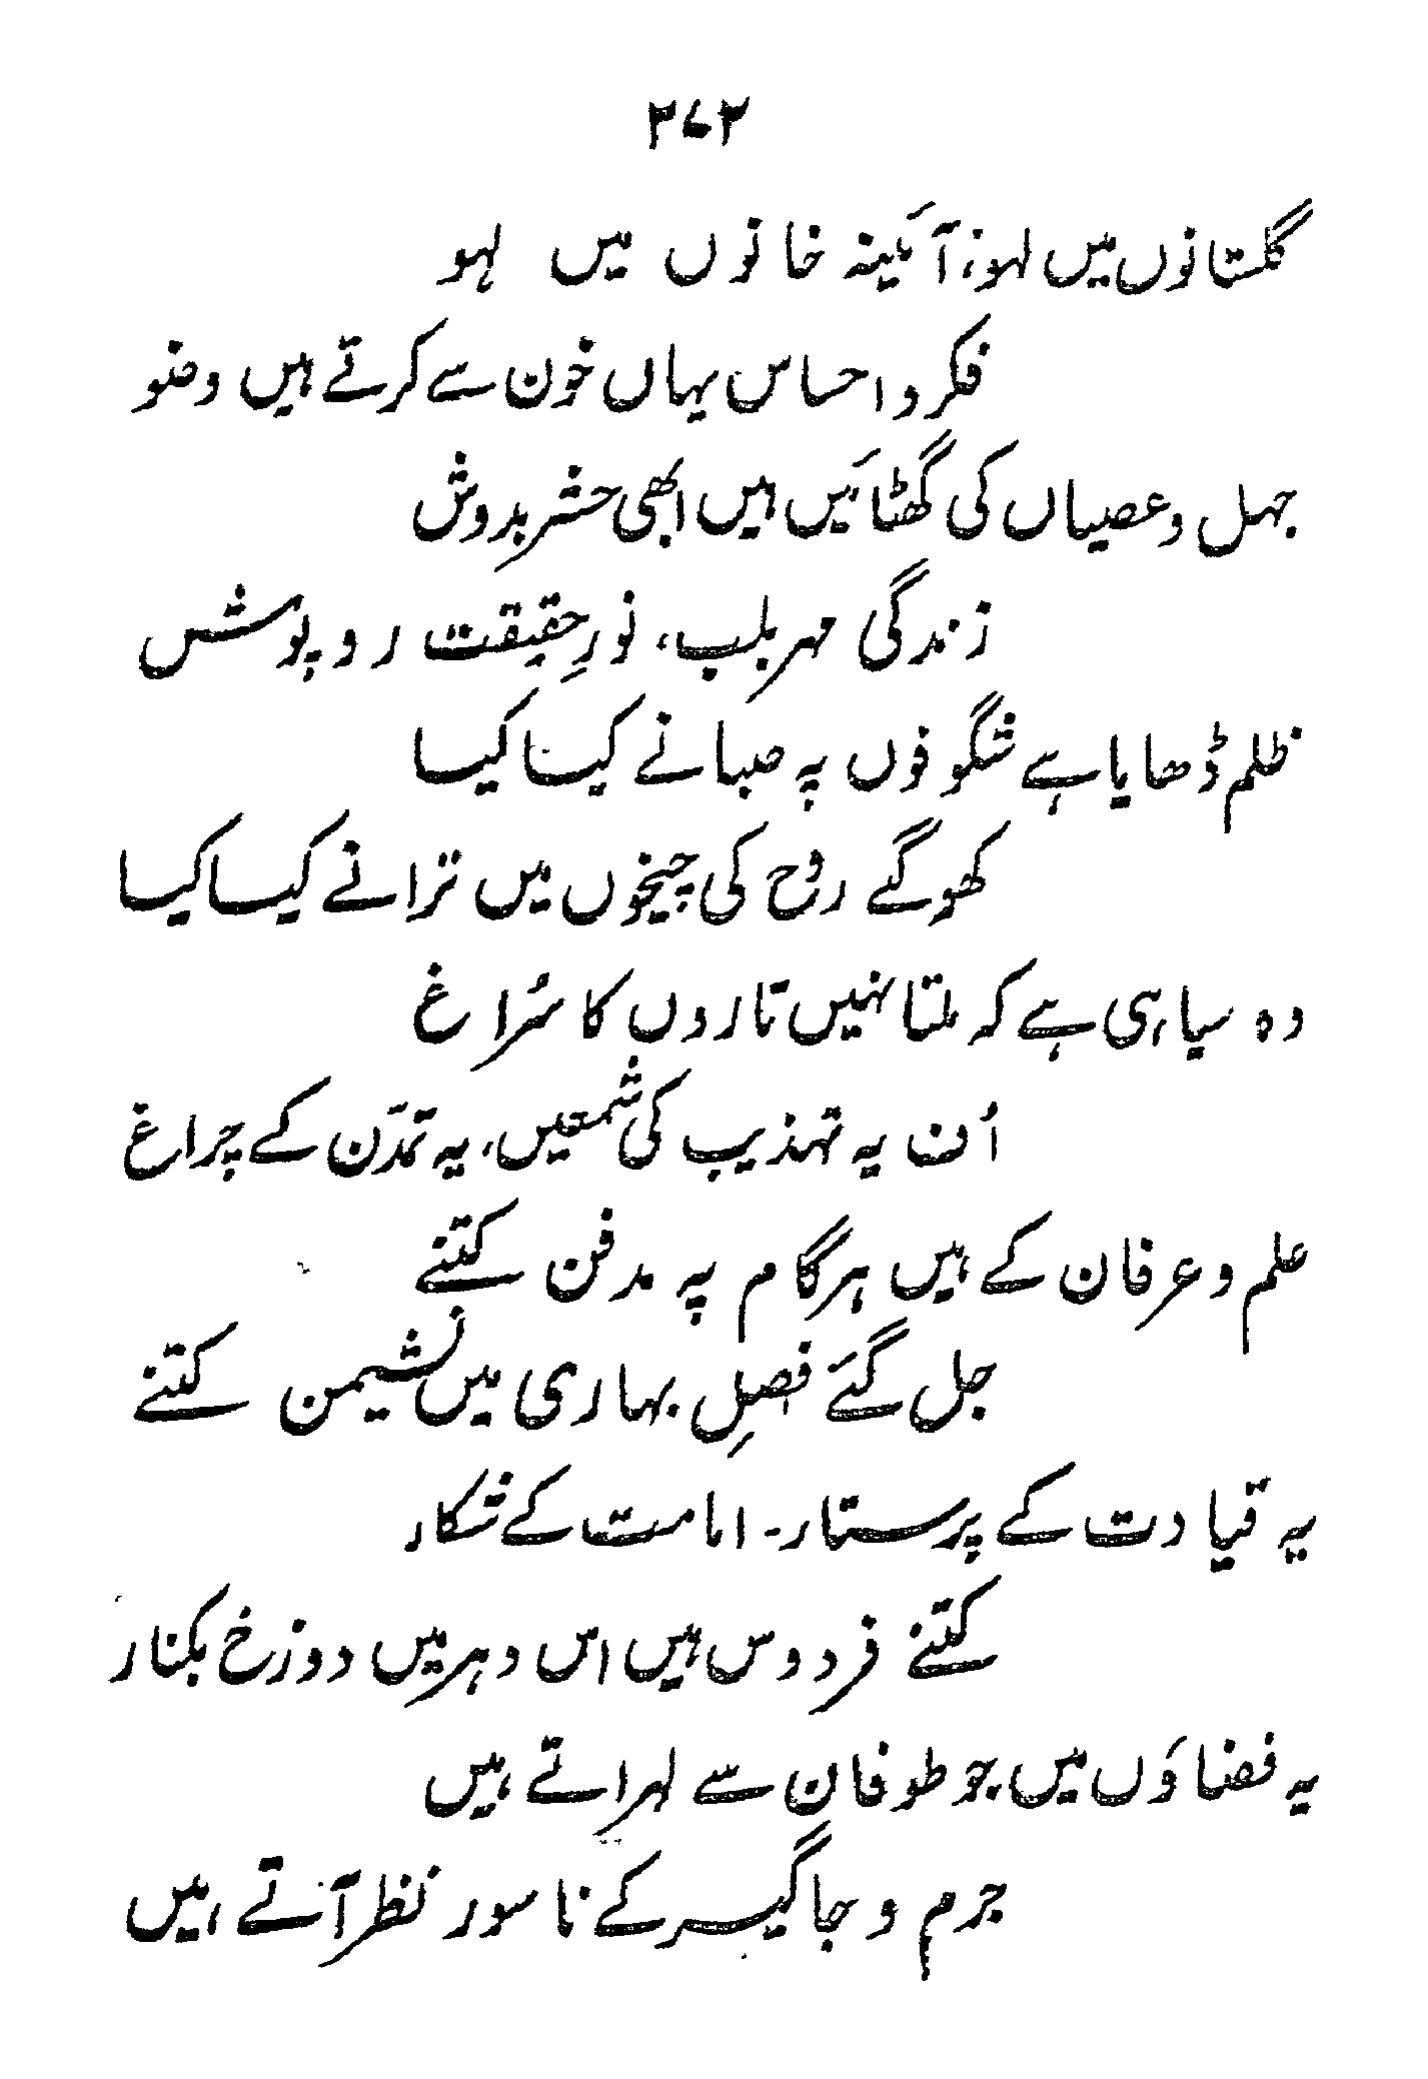 ۳۷۳
گلستانوں میں لہو، آئینہ خانوں میں لہو
فکر و احساس یہاں خون سے کرتے ہیں وضو
جہل و عصیاں کی گھٹائیں ہیں ابھی حشر بدوش
زندگی مہر بلب، نورِ حقیقت روپوش
ظلم ڈھایا ہے شگوفوں پہ صبا نے کیسا کیسا
کھو گئے رُوح کی چیخوں میں ترانے کیسا کیسا
وہ سیاہی ہے کہ ملتا نہیں تاروں کا سُراغ
اُف یہ تہذیب کی شمعیں، یہ تمدّن کے چراغ
علم و عرفان کے ہیں ہر گام پہ مدفن کتنے
جل گئے فصلِ بہاری میں نشیمن کتنے
یہ قیادت کے پرستار۔ امامت کے شکار
کتنے فردوس ہیں اس دہر میں دوزخ بکنار
یہ فضاؤں میں جو طوفان سے لہراتے ہیں
جرم و جاگیر کے ناسور نظر آتے ہیں